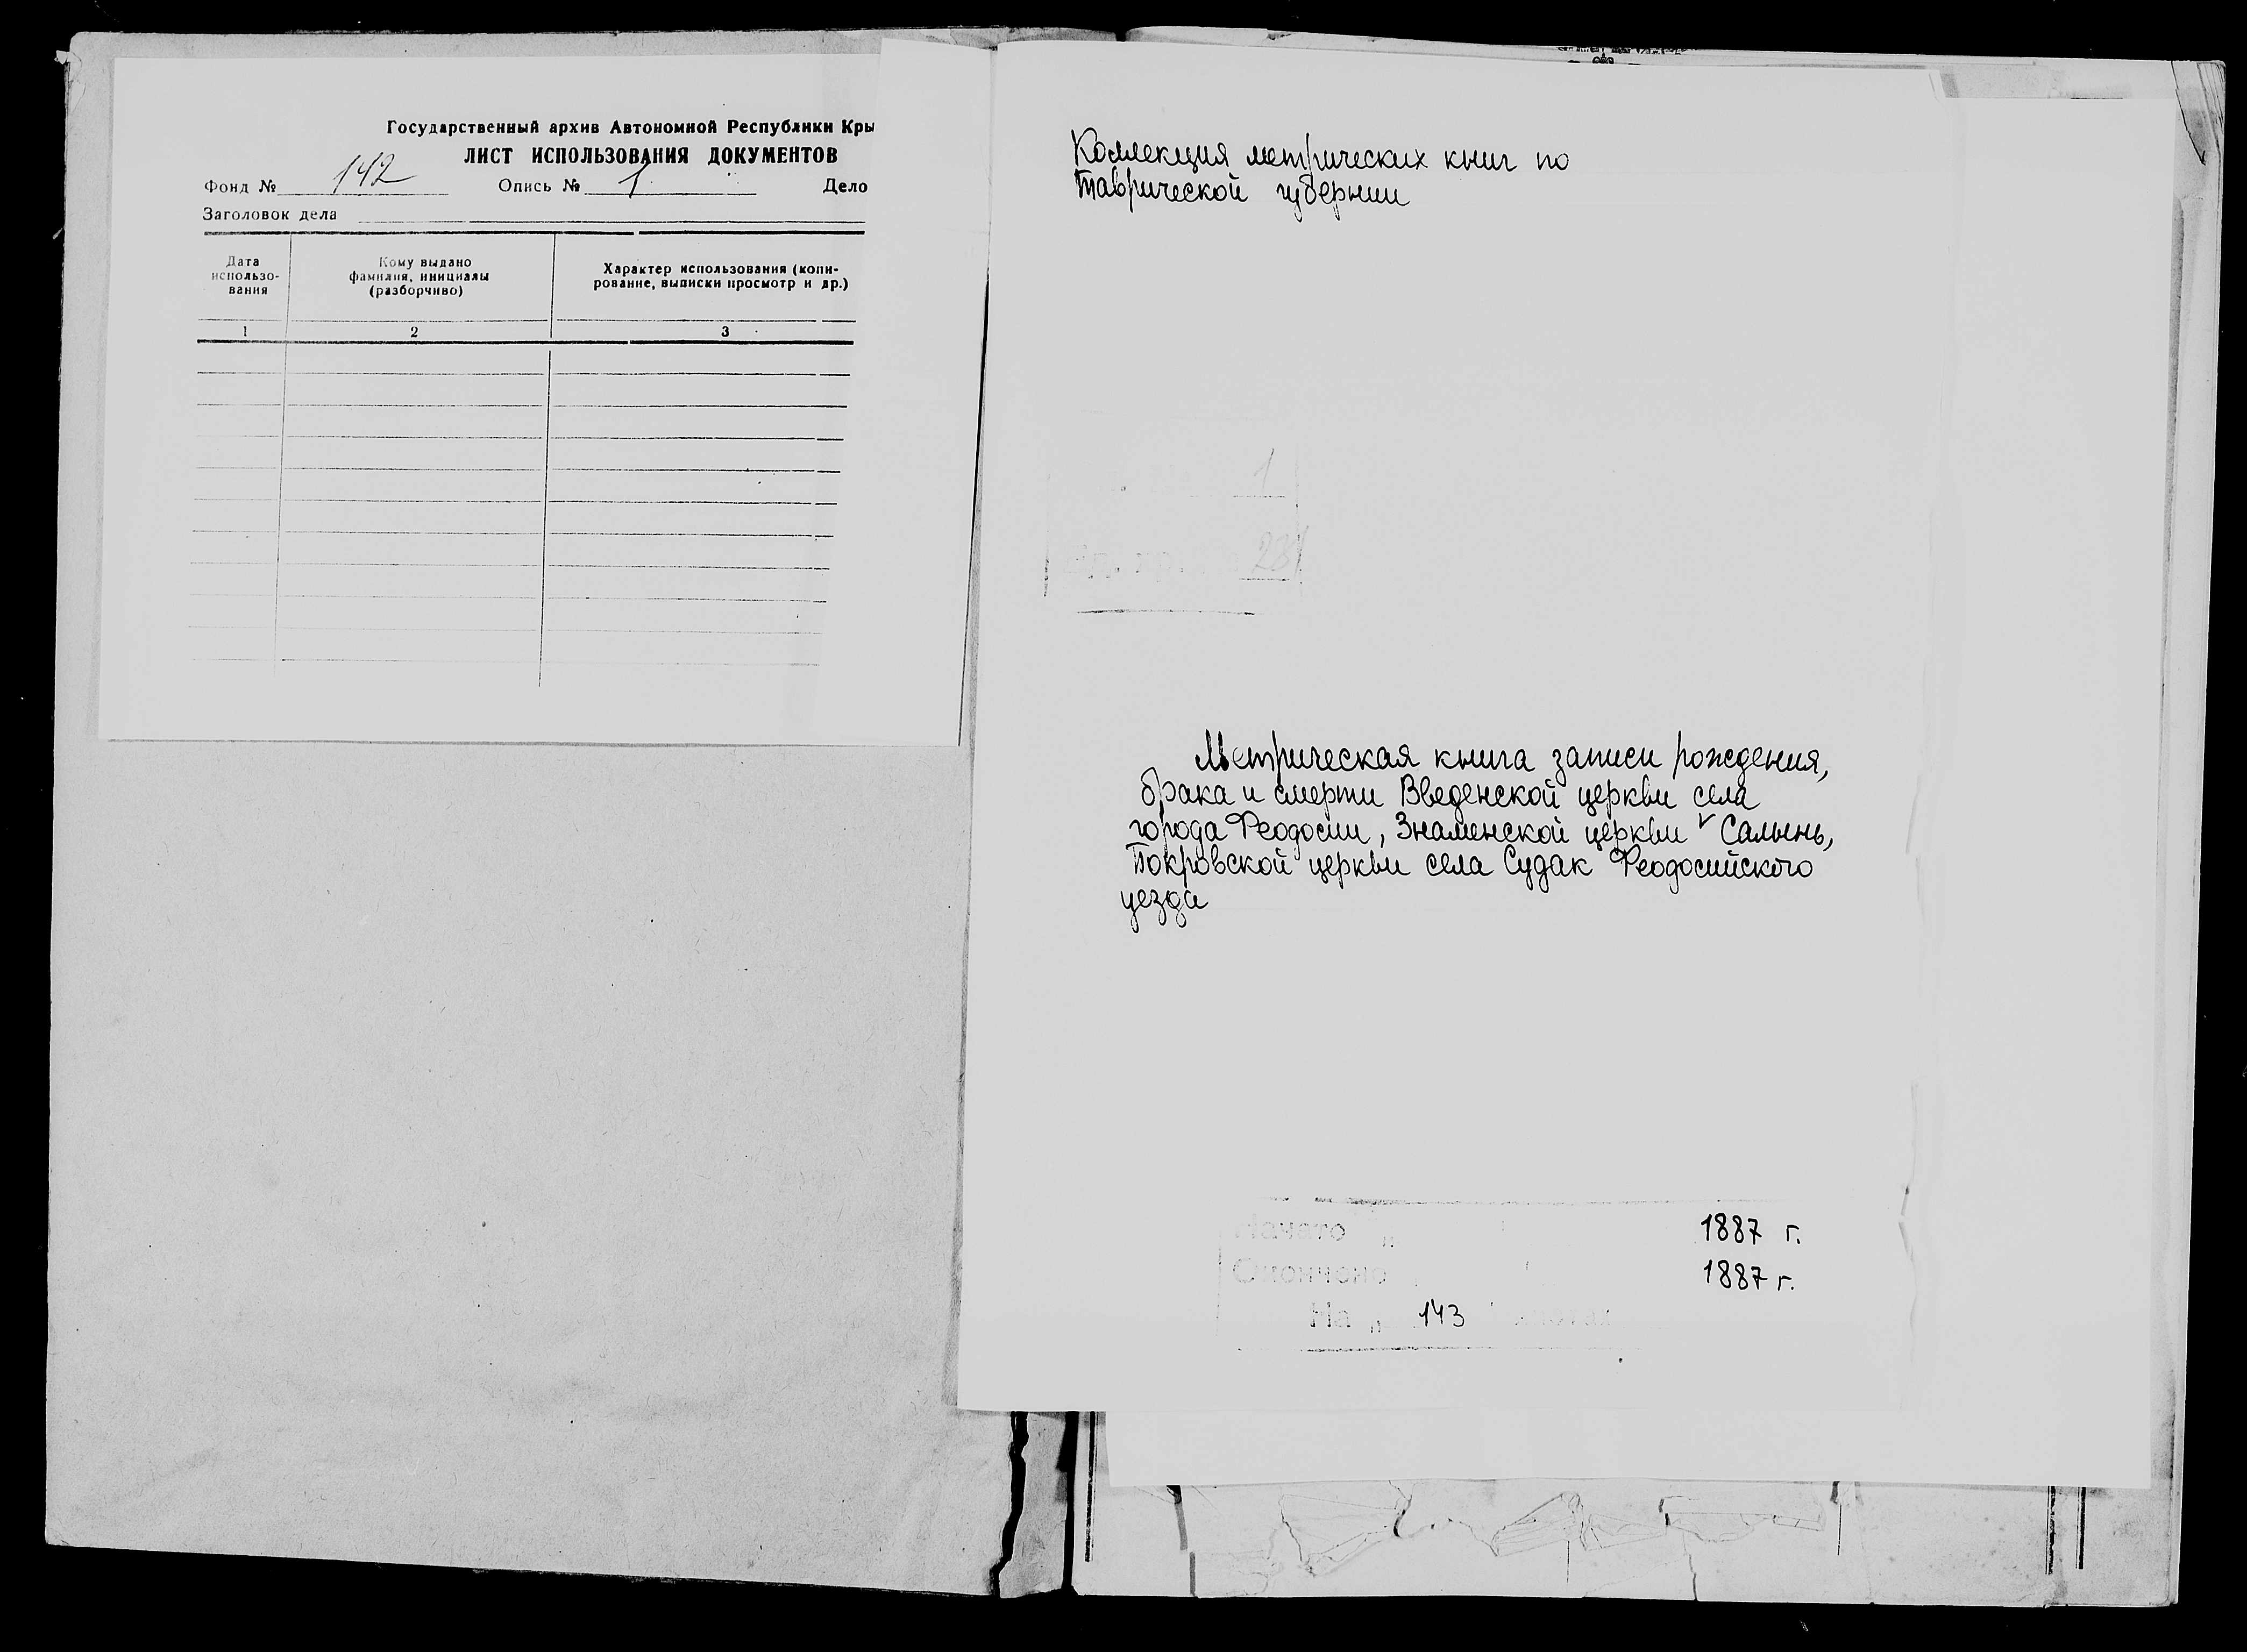 Государственный архив Автономной Республики Кры
ЛИСТ ИСПОЛЬЗОВАНИЯ ДОКУМЕНТОВ
Фонд № 142 Опись № 1 Дело
Заголовок дела
Дата использо-
вания
Кому выдано
фамилия, инициалы
(разборчиво)
Характер использования (копи-
рование, выписки просмотр и др.)
1 2 3
Коллекция метрических книг по
Таврической губернии
1
Метрическая книга записи рождения,
брака и смерти Введенской церкви села
города Феодосии, Знаменской церкви V Салынь,
Покровской церкви села Судак Феодосийского
уезда
Начато „ 1887 г.
Окончено 1887 г.
На „ 143